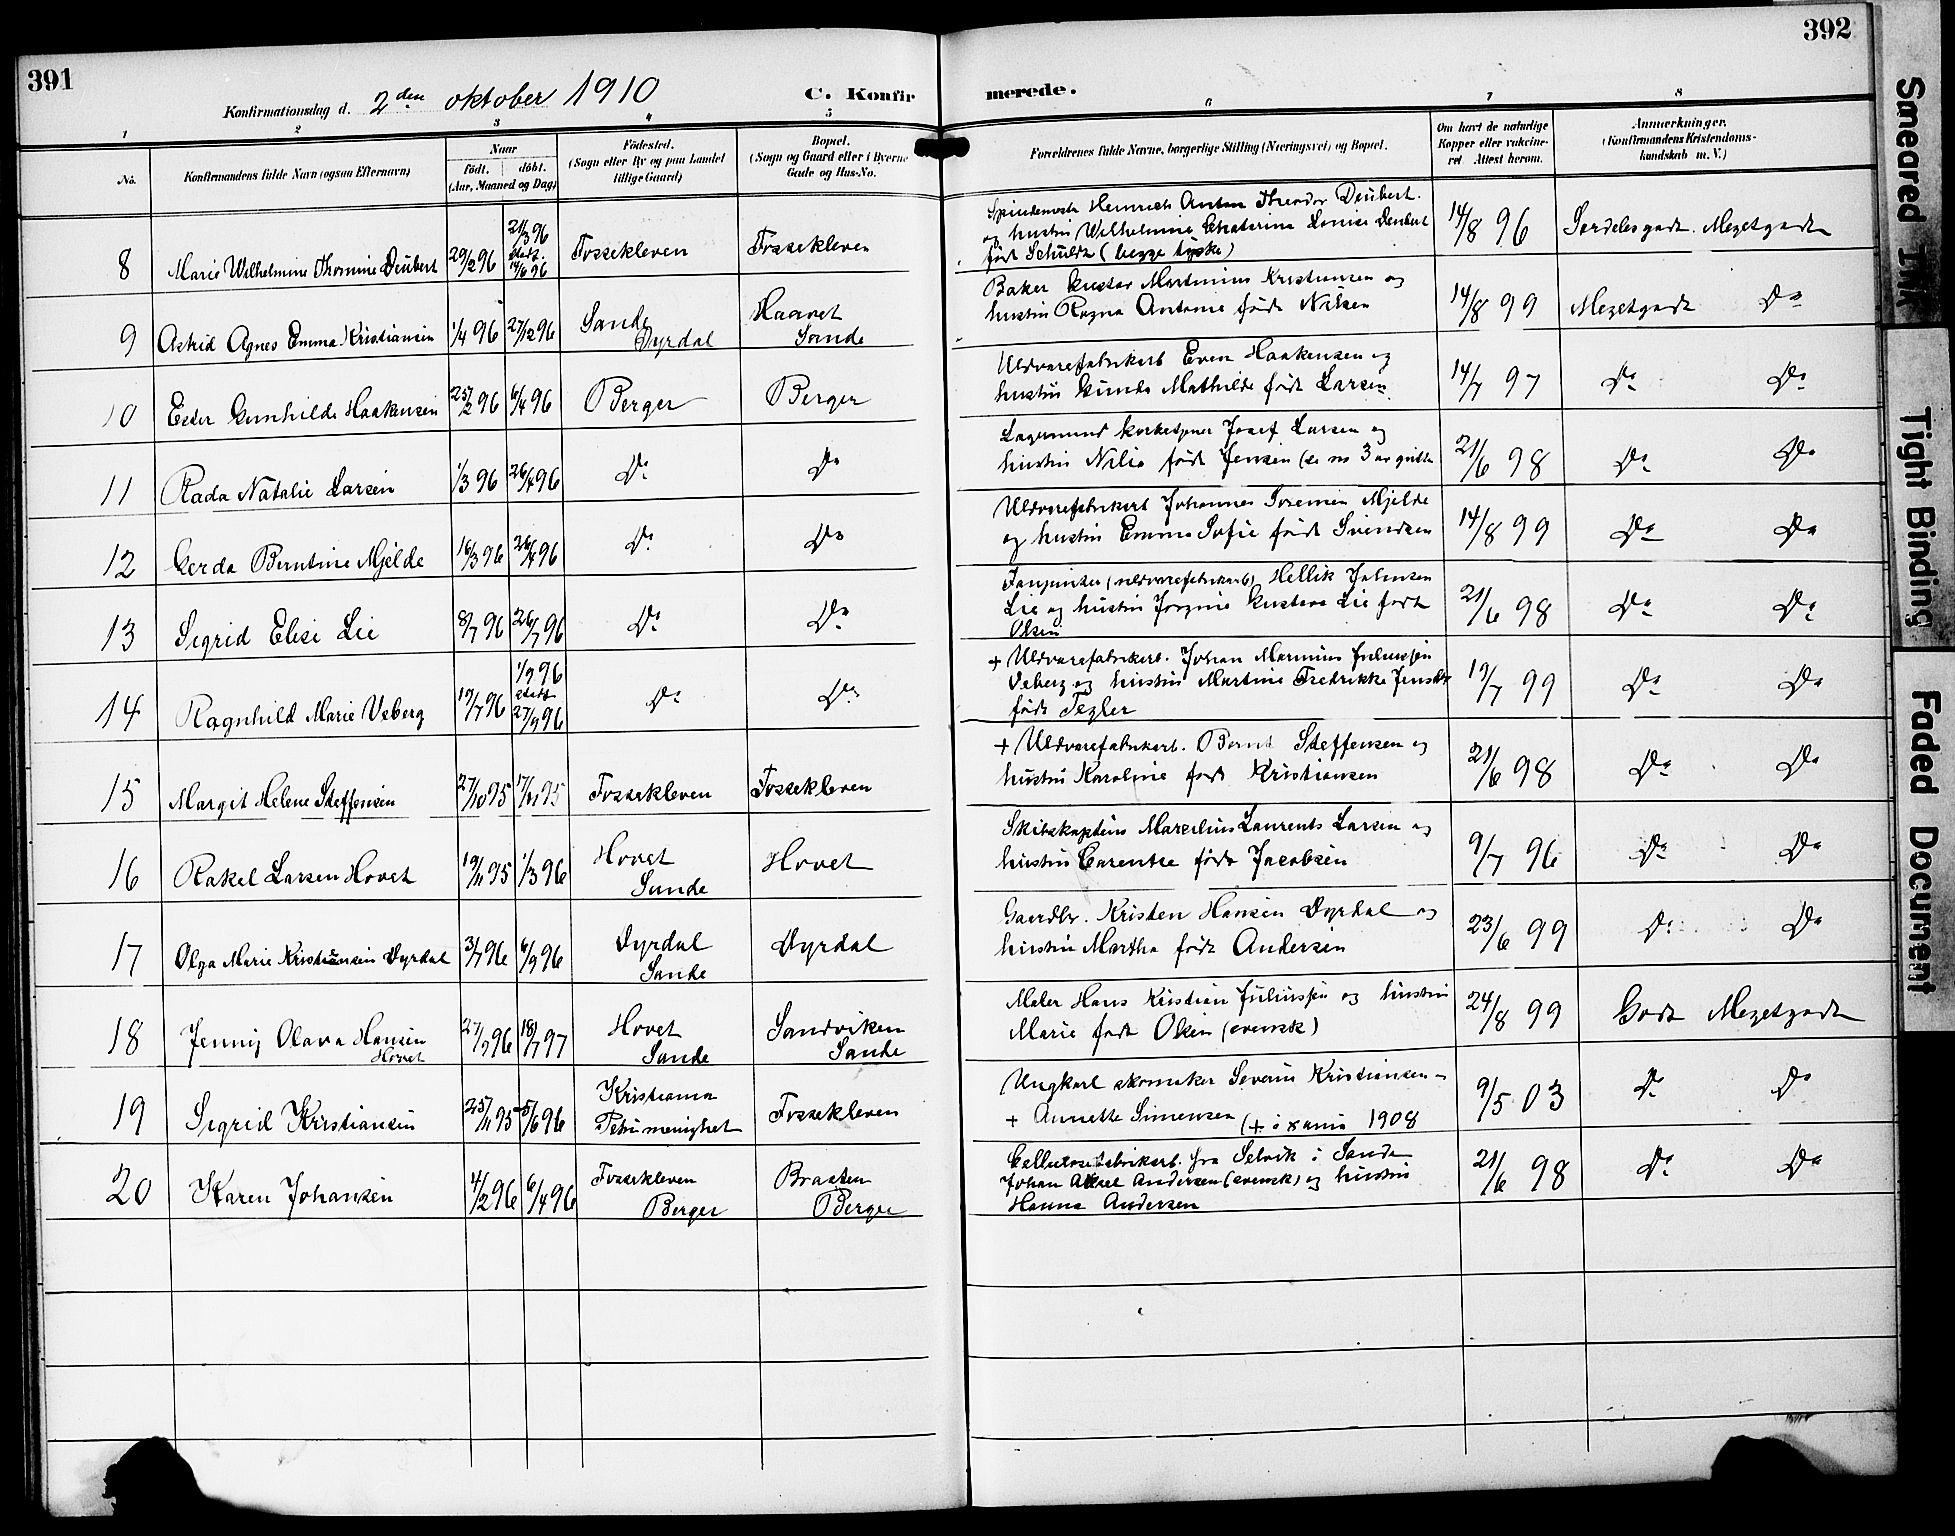 391
392
Konfirmationsdag d. 2den oktober 1910
C. Konfirmerede.
1
2
3
4
5
6
7
8
No.
Konfirmandens fulde Navn (ogsaa Efternavn)
Naar
født. døbt.
(Aar, Maaned og Dag)
Fødested.
(Sogn eller By og paa Landet
tillige Gaard)
Bopæl.
(Sogn og Gaard eller i Byerne
Gade og Hus-No.
Forældrenes fulde Navne, borgerlige Stilling (Næringsvei) og Bopæl.
Om havt de naturlige
Kopper eller vakcine-
ret Attest herom.
Anmærkninger.
(Konfirmandens Kristendoms-
kundskab m. V.)
8 Marie Wilhelmine Thomine Deubert 29/2 96 21/3 96 stadf. 14/6 96 Fossekleven Fossekleven
Spindemester Heinrich Anton Theodor Deubert
og hustru Wilhelmine Chatarina Louise Deubert
født Schuldt (begge tyske)
14/8 96 Særdelesgodt. Megetgodt
9 Astrid Agnes Emma Kristiansen 1/4 96 27/12 96 Sande Dyrdal Haavet Sande
Baker Gustav Martinius Kristiansen og
hustru Ragna Antonie født Nilsen
14/8 99 Megetgodt Do
10 Ester Gunhilde Haakensen 25/2 96 6/4 96 Berger Berger
Uldvarefabrikarb Even Haakensen og
hustru Gunda Mathilde født Larsen
14/7 97 Do Do
11 Rada Natalie Larsen 1/3 96 26/4 96 Do Do
Josef Larsen og
hustru Nilia født Jensen
21/6 98 Do Do
12 Gerda Berntine Mjelde 16/3 96 26/4 96 Do Do
Uldvarefabrikarb Johannes Sørensen Mjelde
og hustru Emma Sofie født Svendsen
14/8 99 Do Do
13 Sigrid Elise Lie 8/7 96 26/7 96 Do Do
(uldvarefabrikarb) Hellik Johensen
Lie og hustru Jorgine Gustava Lie født
Olsen
21/6 98 Do Do
14 Ragnhild Marie Veberg 19/7 96 1/9 96 stadf. 27/9 96 Do Do
+ Uldvarefabrikarb. Johan Marinius Juliussen
Veberg og hustru Martine Fredrikke
født Tegler
19/7 99 Do Do
15 Margit Helene Steffensen 27/10 95 17/11 95 Fossekleven Fossekleven
+ Uldvarefabrikarb. Bernt Steffensen og
hustru Karoline født Kristiansen
21/6 98 Do Do
16 Rakel Larsen Hovet 19/11 95 1/3 96 Hovet Sande Hovet
Skibskaptein Marcelius Laurents Larsen og
hustru Carentse født Jacobsen
9/7 96 Do Do
17 Olga Marie Kristiansen Dyrdal 3/7 96 6/9 96 Dyrdal Sande Dyrdal
Gaardbr. Kristen Hansen Dyrdal og
hustru Martha født Andersen
23/6 99 Do Do
18 Jenny Olava Hansen Hovet 27/9 96 18/7 97 Hovet Sande Sandviken Sande
Maler Hans Kristian Juliussen og hustru
Marie født Olsen (svensk)
24/8 99 Godt Megetgodt
19 Sigrid Kristiansen 25/11 95 5/6 96 Kristiania Petri menighet Fossekleven
Ungkarl skomaker Severin Kristiansen -
+ Annette Simensen (+ i xania 1908
9/5 03 Do Do
20 Karen Johansen 4/2 96 6/4 96 Fossekleven Berger Braaten Berger
Cellulosefabrikarb. fra Selvik i Sande
Johan Aksel Andersen (svensk) og hustru
Hanna Andersen
21/6 98 Do Do
Smeared Ink
Tight Binding
Faded Document